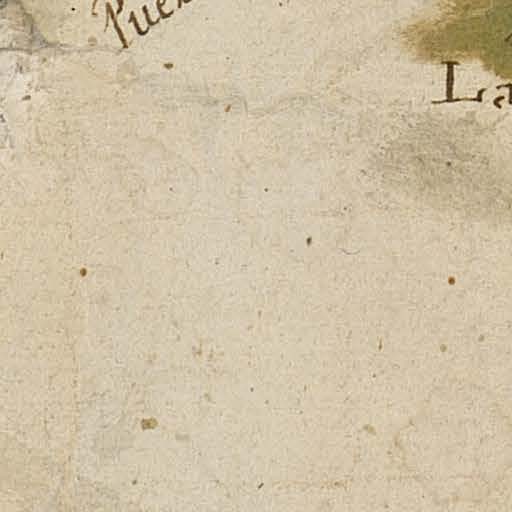 Pue
La